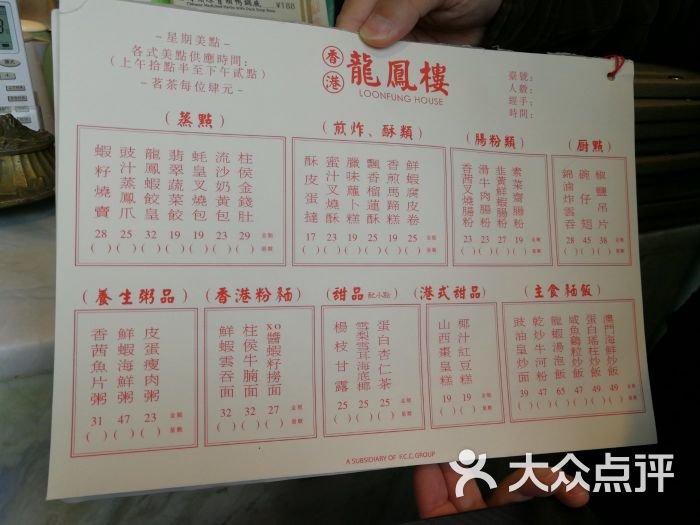 ¥188
-星期美點-
各式美點供應時間：
（上午拾點半至下午貳點）
-茗茶每位肆元-
香港
龍鳳樓
LOONFUNG HOUSE
臺號：
人數：
經手：
時間：
（蒸點）
蝦籽燒賣 28
豉汁蒸鳳爪 25
龍鳳蝦餃 32
翡翠蔬菜餃 19
蚝皇叉燒包 19
流沙奶黃包 23
柱侯金錢肚 29
金額
星數
（煎炸、酥類）
酥皮蛋撻 17
蜜汁叉燒酥 23
臘味蘿蔔糕 19
飄香榴蓮酥 25
香煎馬蹄糕 19
鮮蝦腐皮卷 25
金額
（腸粉類）
香茜叉燒腸粉 23
滑牛肉腸粉 23
韭黃鮮蝦腸粉 27
素菜齋腸粉 19
金額
（廚點）
錦滷炸雲吞 28
碗仔翅 45
椒鹽吊片 38
金額
（養生粥品）
香茜魚片粥 31
鮮蝦海鮮粥 47
皮蛋瘦肉粥 23
金額
（香港粉麵）
鮮蝦雲吞面 32
柱侯牛腩面 32
XO醬蝦籽撈面 27
金額
（甜品 配小點）
楊枝甘露 25
雪梨雪耳海底椰 25
蛋白杏仁茶 25
金額
（港式甜品）
山西棗皇糕 19
椰汁紅豆糕 19
金額
（主食麵飯）
豉油皇炒面 39
乾炒牛河粉 47
龍蝦湯泡飯 65
咸魚雞粒炒飯 47
蛋白瑤柱炒飯 49
澳門海鮮炒飯 49
金額
A SUBSIDIARY OF F.C.C. GROUP
大众点评